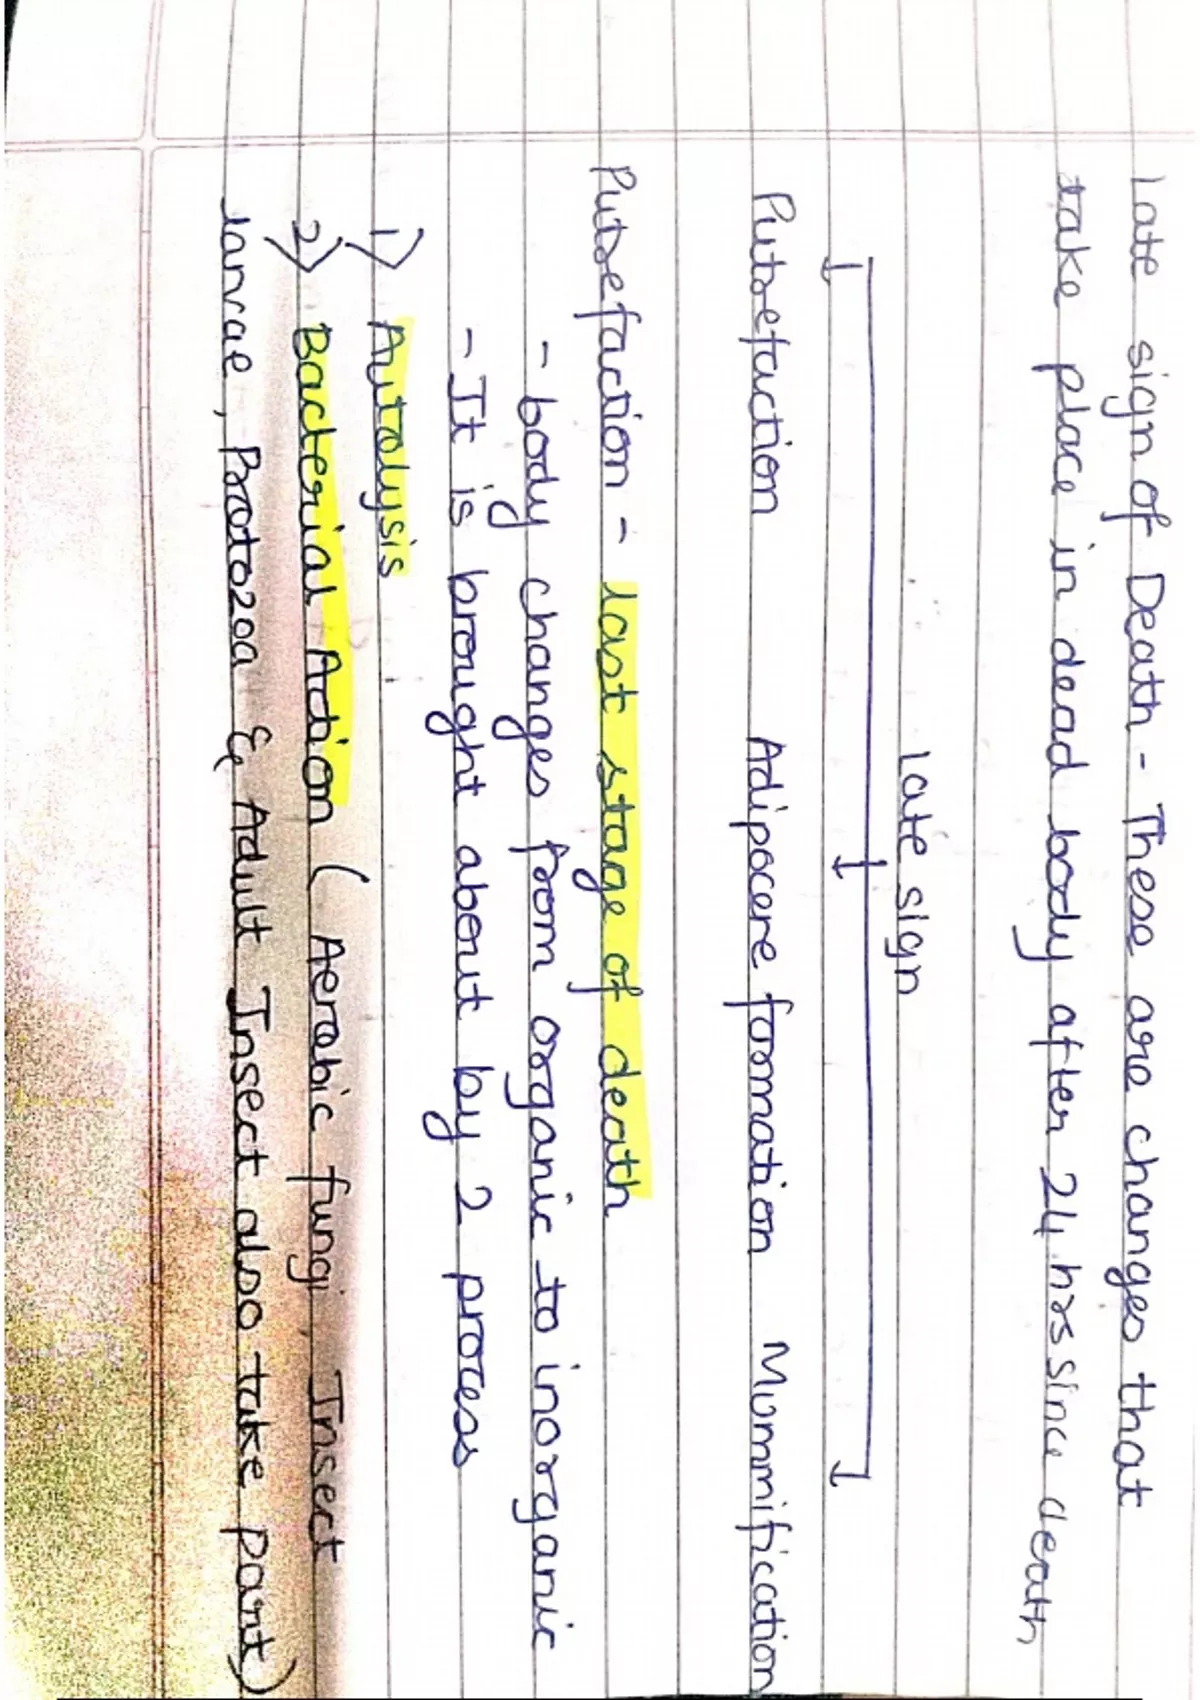 Late sign of Death - These are changes that
take place in dead body after 24 hrs since death
late sign
Putrefaction Adipocere formation Mummification
Putrefaction - last stage of death
- body changes from organic to inorganic
- It is brought about by 2 process
1) Autolysis
2) Bacterial Action ( Aerobic fungi, Insect
larvae, Protozoa & Adult Insect also take part)